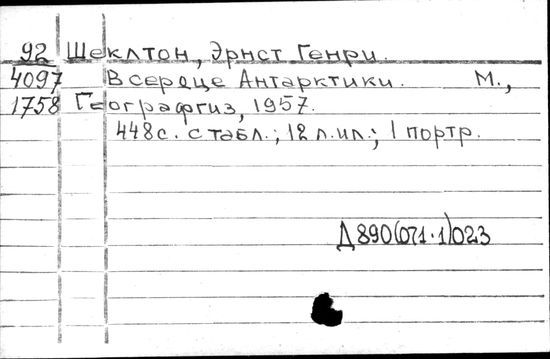 92 Шеклтон, Эрнст Генри.
4097 В сердце Антарктики. М.,
1758 Географгиз, 1957.
448с. с табл.; 12 л.ил.; 1 портр.
Д890(071·1)023